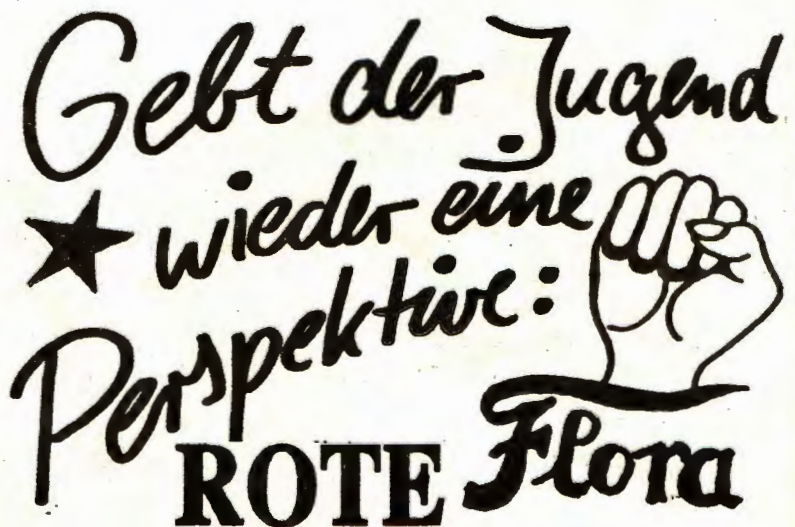 Gebt der Jugend
wieder eine
Perspektive:
ROTE Flora